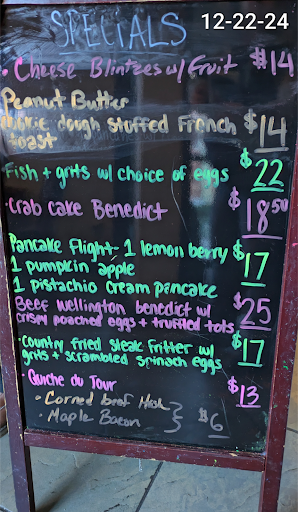 12-22-24
SPECIALS
• Cheese Blintzes w/ Fruit $14
Peanut Butter
cookie dough stuffed French $14
toast
Fish + grits w/ choice of eggs $22
• Crab Cake Benedict $18.50
Pancake Flight - 1 lemon berry $17
1 pumpkin apple
1 pistachio cream pancake
Beef wellington benedict w/ $25
crispy poached eggs + truffled tots
• Country fried steak fritter w/ $17
grits + scrambled spinach eggs
• Quiche du Tour $13
• Corned beef Hash } $6
• Maple Bacon